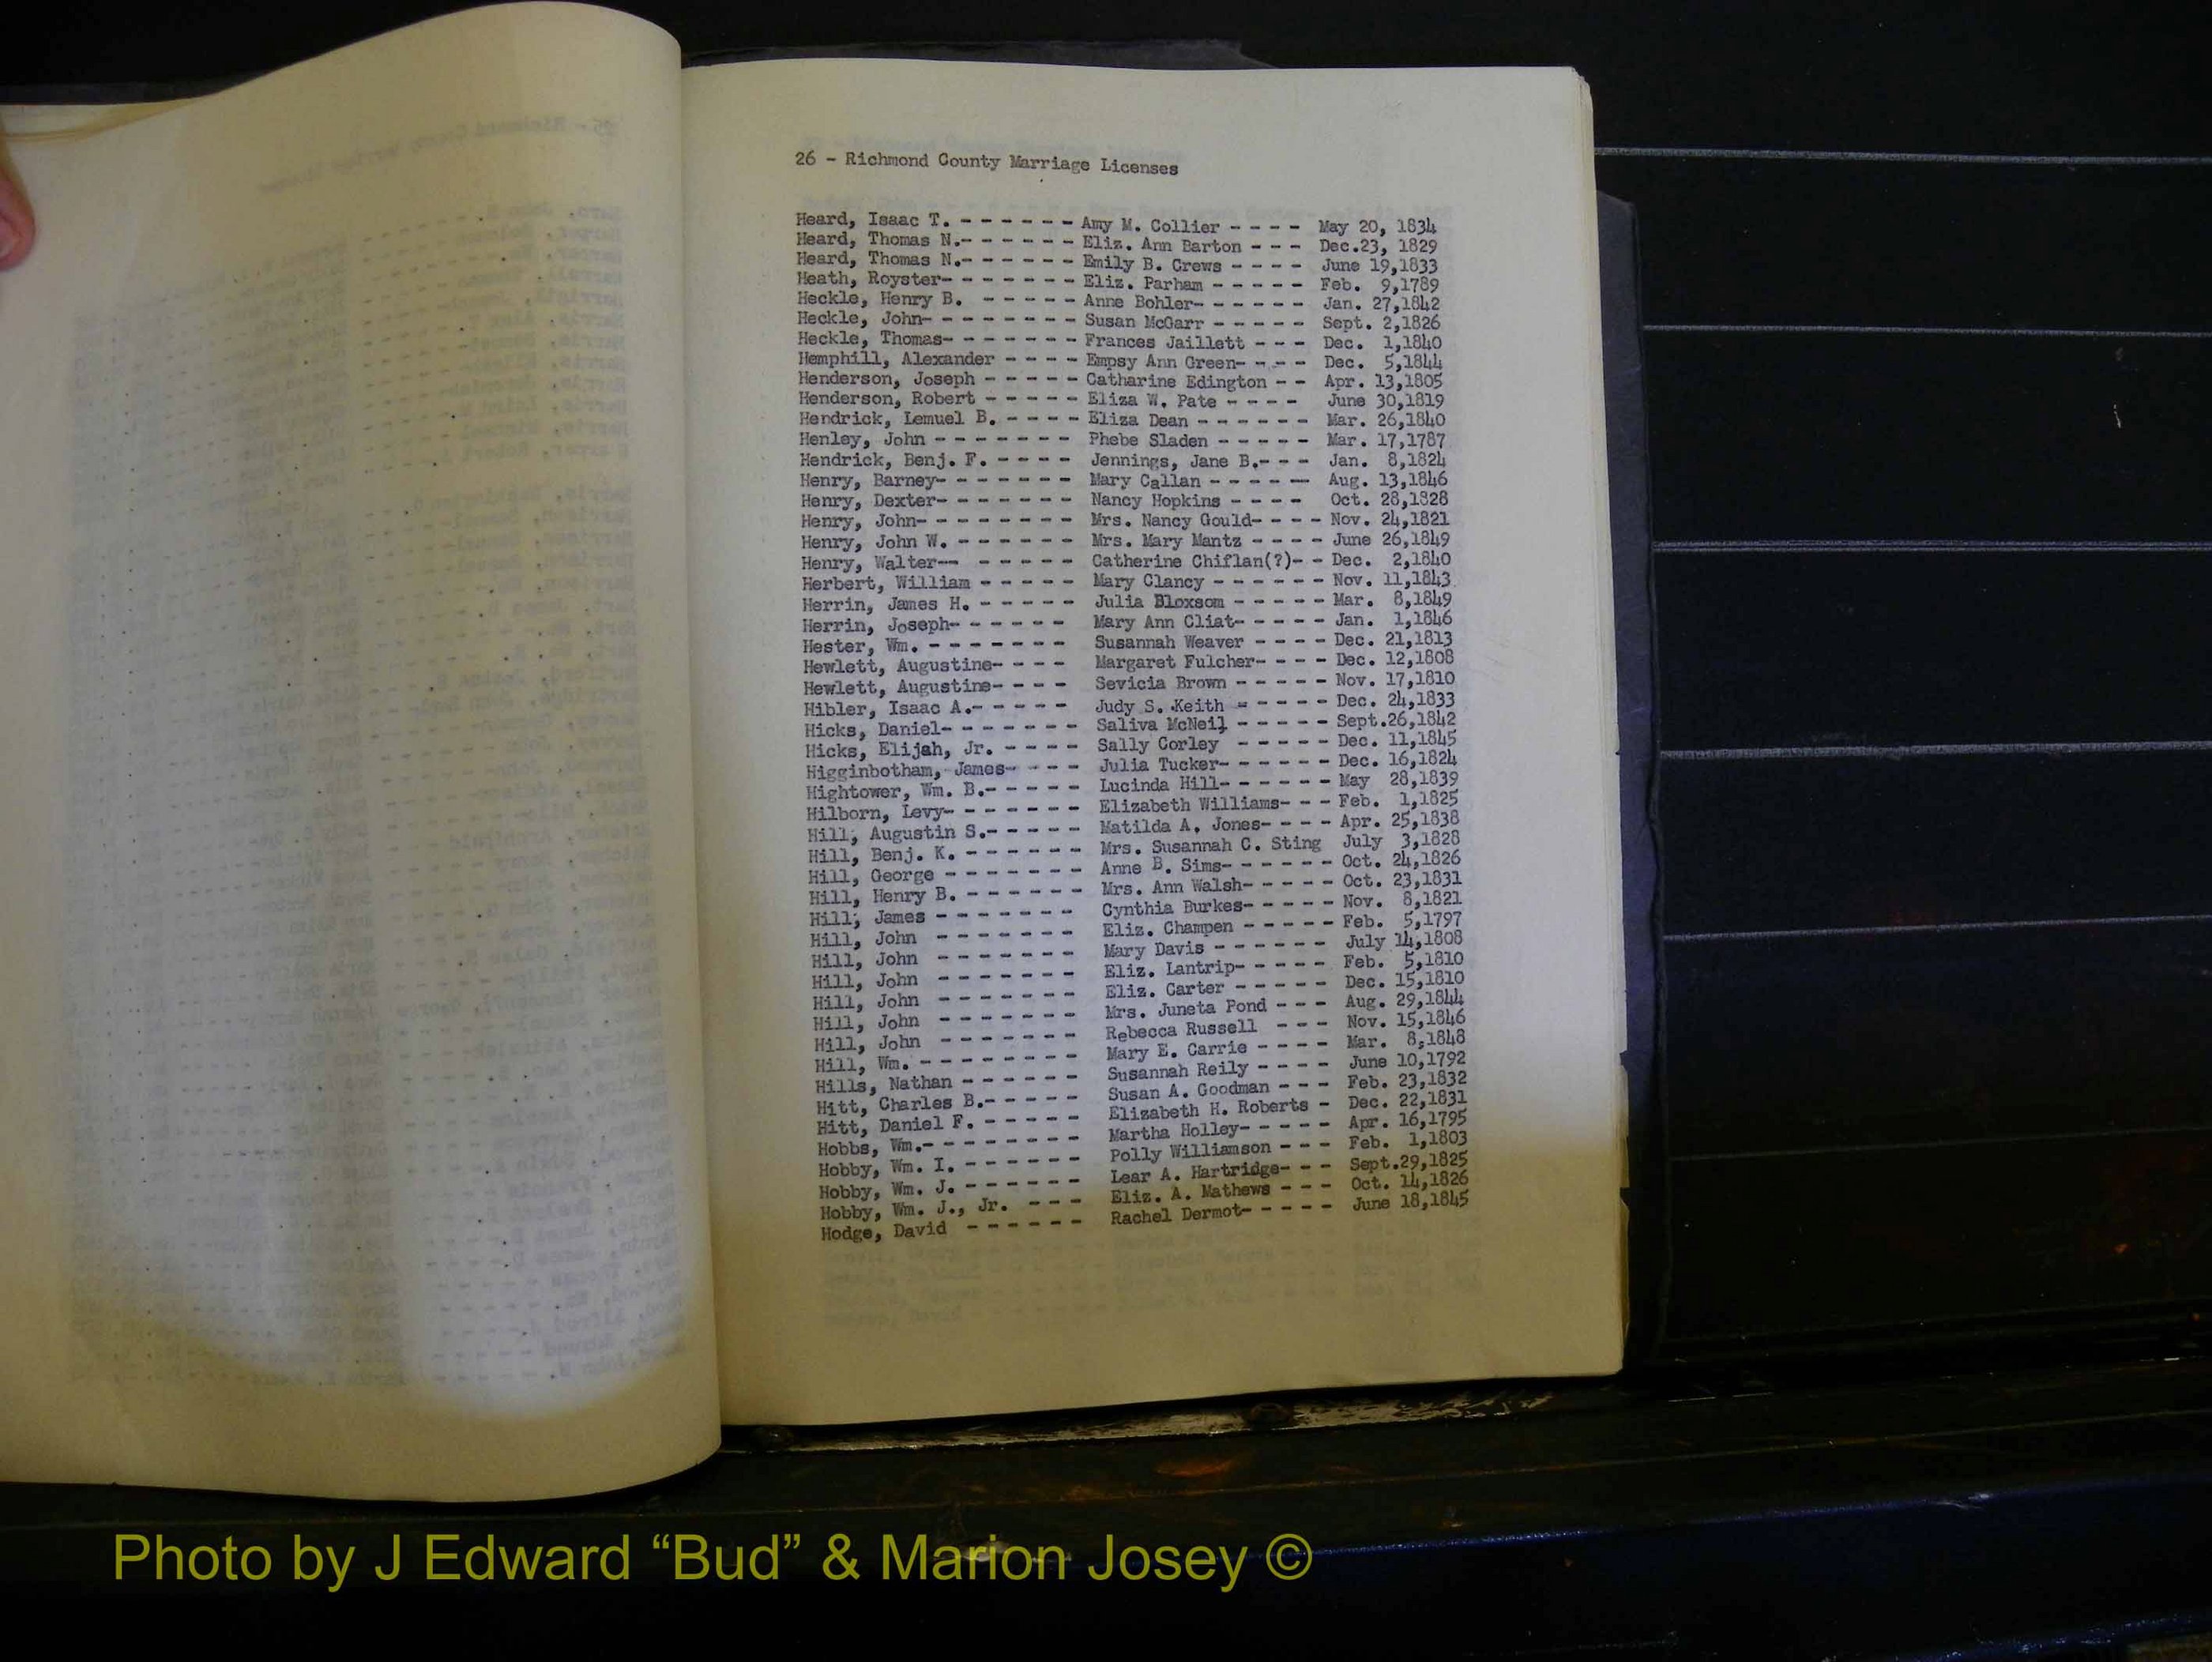 26 - Richmond County Marriage Licenses
Heard, Isaac T. - - - - - - Amy M. Collier - - - - May 20, 1834
Heard, Thomas N.- - - - - - Eliz. Ann Barton - - - Dec.23, 1829
Heard, Thomas N.- - - - - - Emily B. Crews - - - - June 19,1833
Heath, Royster- - - - - - - Eliz. Parham - - - - - Feb. 9,1789
Heckle, Henry B. - - - - - Anne Bohler- - - - - - Jan. 27,1842
Heckle, John- - - - - - - - Susan McGarr - - - - - Sept. 2,1826
Heckle, Thomas- - - - - - - Frances Jaillett - - - Dec. 1,1840
Hemphill, Alexander - - - - Empsy Ann Green- - - - Dec. 5,1844
Henderson, Joseph - - - - - Catharine Edington - - Apr. 13,1805
Henderson, Robert - - - - - Eliza W. Pate - - - - June 30,1819
Hendrick, Lemuel B. - - - - Eliza Dean - - - - - - Mar. 26,1840
Henley, John - - - - - - - Phebe Sladen - - - - - Mar. 17,1787
Hendrick, Benj. F. - - - - Jennings, Jane B.- - - Jan. 8,1824
Henry, Barney- - - - - - - Mary Callan - - - - - - Aug. 13,1846
Henry, Dexter- - - - - - - Nancy Hopkins - - - - Oct. 28,1828
Henry, John- - - - - - - - Mrs. Nancy Gould- - - - Nov. 24,1821
Henry, John W. - - - - - - Mrs. Mary Mantz - - - - June 26,1849
Henry, Walter-- - - - - - Catherine Chiflan(?)- - Dec. 2,1840
Herbert, William - - - - - Mary Clancy - - - - - - Nov. 11,1843
Herrin, James H. - - - - - Julia Bloxsom - - - - - Mar. 8,1849
Herrin, Joseph- - - - - - Mary Ann Cliat- - - - - Jan. 1,1846
Hester, Wm. - - - - - - - Susannah Weaver - - - - Dec. 21,1813
Hewlett, Augustine- - - - Margaret Fulcher- - - - Dec. 12,1808
Hewlett, Augustine- - - - Sevicia Brown - - - - - Nov. 17,1810
Hibler, Isaac A.- - - - - Judy S. Keith - - - - - Dec. 24,1833
Hicks, Daniel- - - - - - - Saliva McNeil - - - - - Sept.26,1842
Hicks, Elijah, Jr. - - - - Sally Corley - - - - - Dec. 11,1845
Higginbotham, James- - - - Julia Tucker- - - - - - Dec. 16,1824
Hightower, Wm. B.- - - - - Lucinda Hill- - - - - - May 28,1839
Hilborn, Levy- - - - - - - Elizabeth Williams- - - Feb. 1,1825
Hill, Augustin S.- - - - - Matilda A. Jones- - - - Apr. 25,1838
Hill, Benj. K. - - - - - - Mrs. Susannah C. Sting July 3,1828
Hill, George - - - - - - - Anne B. Sims- - - - - - Oct. 24,1826
Hill, Henry B. - - - - - - Mrs. Ann Walsh- - - - - Oct. 23,1831
Hill, James - - - - - - - Cynthia Burkes- - - - - Nov. 8,1821
Hill, John - - - - - - - Eliz. Champen - - - - - Feb. 5,1797
Hill, John - - - - - - - Mary Davis - - - - - - July 14,1808
Hill, John - - - - - - - Eliz. Lantrip- - - - - Feb. 5,1810
Hill, John - - - - - - - Eliz. Carter - - - - - Dec. 15,1810
Hill, John - - - - - - - Mrs. Juneta Pond - - - Aug. 29,1844
Hill, John - - - - - - - Rebecca Russell - - - Nov. 15,1846
Hill, Wm. - - - - - - - - Mary E. Carrie - - - - Mar. 8,1848
Hills, Nathan - - - - - - Susannah Reily - - - - June 10,1792
Hitt, Charles B.- - - - - Susan A. Goodman - - - Feb. 23,1832
Hitt, Daniel F. - - - - - Elizabeth H. Roberts - Dec. 22,1831
Hobbs, Wm.- - - - - - - - Martha Holley- - - - - Apr. 16,1795
Hobby, Wm. I. - - - - - - Polly Williamson - - - Feb. 1,1803
Hobby, Wm. J. - - - - - - Lear A. Hartridge- - - Sept.29,1825
Hobby, Wm. J., Jr. - - - Eliz. A. Mathews - - - Oct. 14,1826
Hodge, David - - - - - - Rachel Dermot- - - - - June 18,1845
Photo by J Edward “Bud” & Marion Josey ©